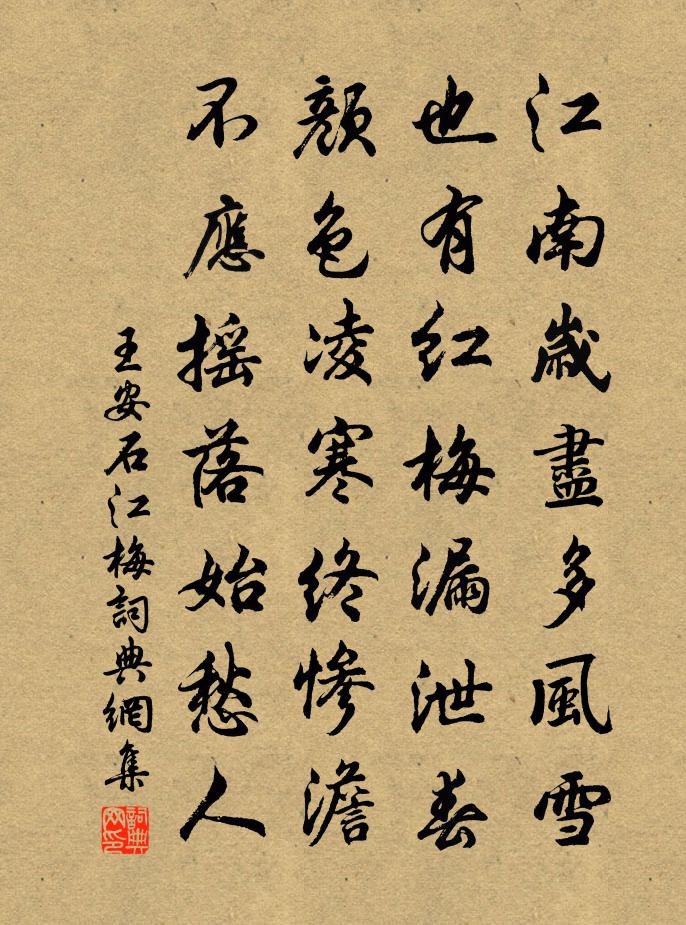 江南歲盡多風雪
也有紅梅漏泄春
顏色凌寒終慘澹
不應搖落始愁人
王安石江梅詞典網集
詞典網印